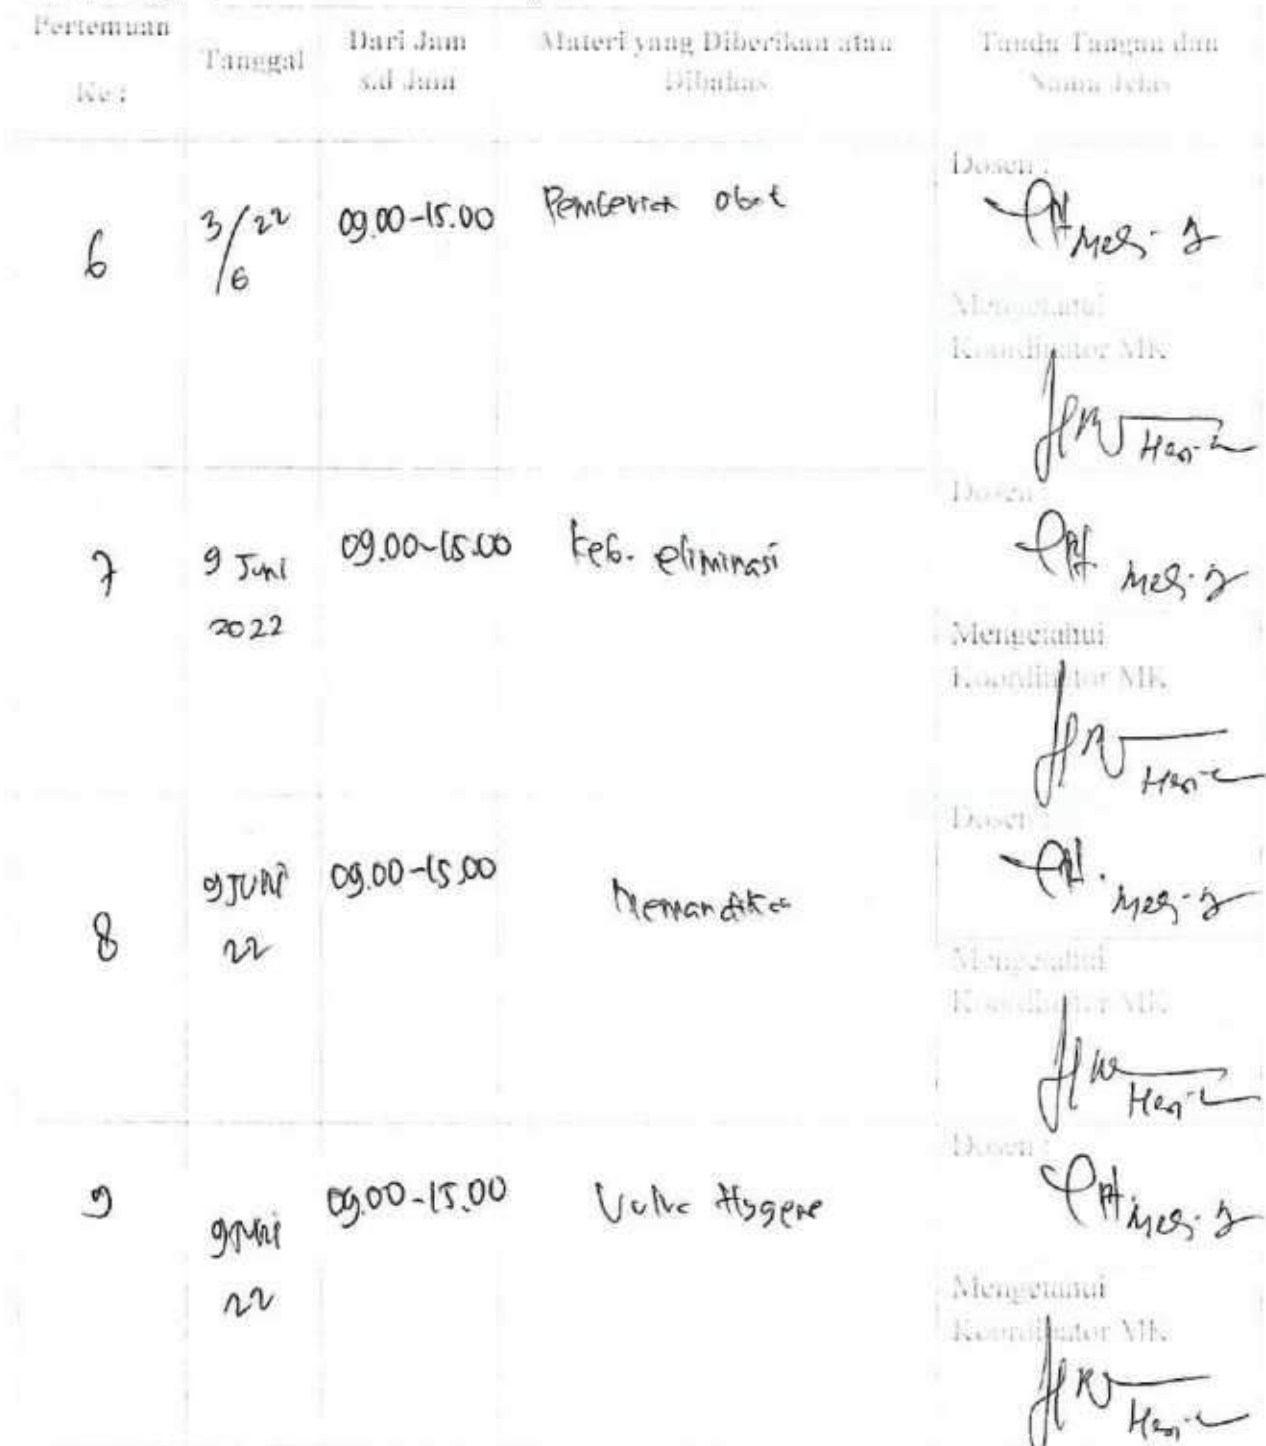 Pertemuan
Ke :
Tanggal
Dari Jam
s.d Jam
Materi yang Diberikan atau
Dibahas
Tanda Tangan dan
Nama Jelas
6
3/22
/6
09.00-15.00
Pemberian obat
Dosen :
Mengetahui
Koordinator MK
7
9 Juni
2022
09.00-15.00
keb. eliminasi
Dosen :
Mengetahui
Koordinator MK
8
9 JUNI
22
09.00-15.00
Dosen :
Mengetahui
Koordinator MK
9
9 Juni
22
09.00-15.00
Vulva Hygene
Dosen :
Mengetahui
Koordinator MK